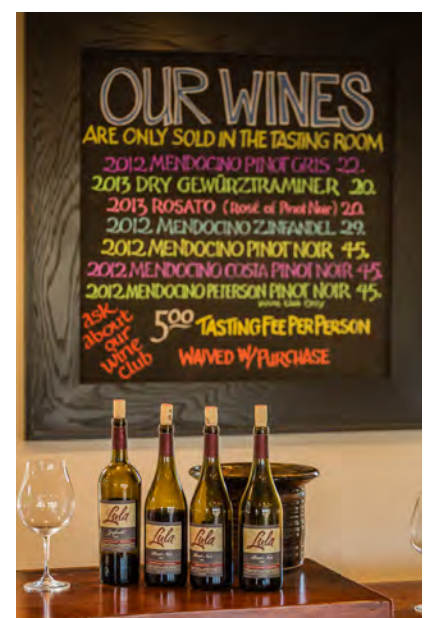 OUR WINES
ARE ONLY SOLD IN THE TASTING ROOM
2012 MENDOCINO PINOT GRIS 22.
2013 DRY GEWÜRZTRAMINER 20.
2013 ROSATO (Rosé of Pinot Noir) 20.
2012 MENDOCINO ZINFANDEL 29.
2012 MENDOCINO PINOT NOIR 45.
2012 MENDOCINO COSTA PINOT NOIR 45.
2012 MENDOCINO PETERSON PINOT NOIR 45.
wine club only
ask
about
our
wine
club
5.00 TASTING FEE PER PERSON
WAIVED W/ PURCHASE
Lula
Zinfandel
Lula
Pinot Noir
Lula
Pinot Noir
Lula
Pinot Noir